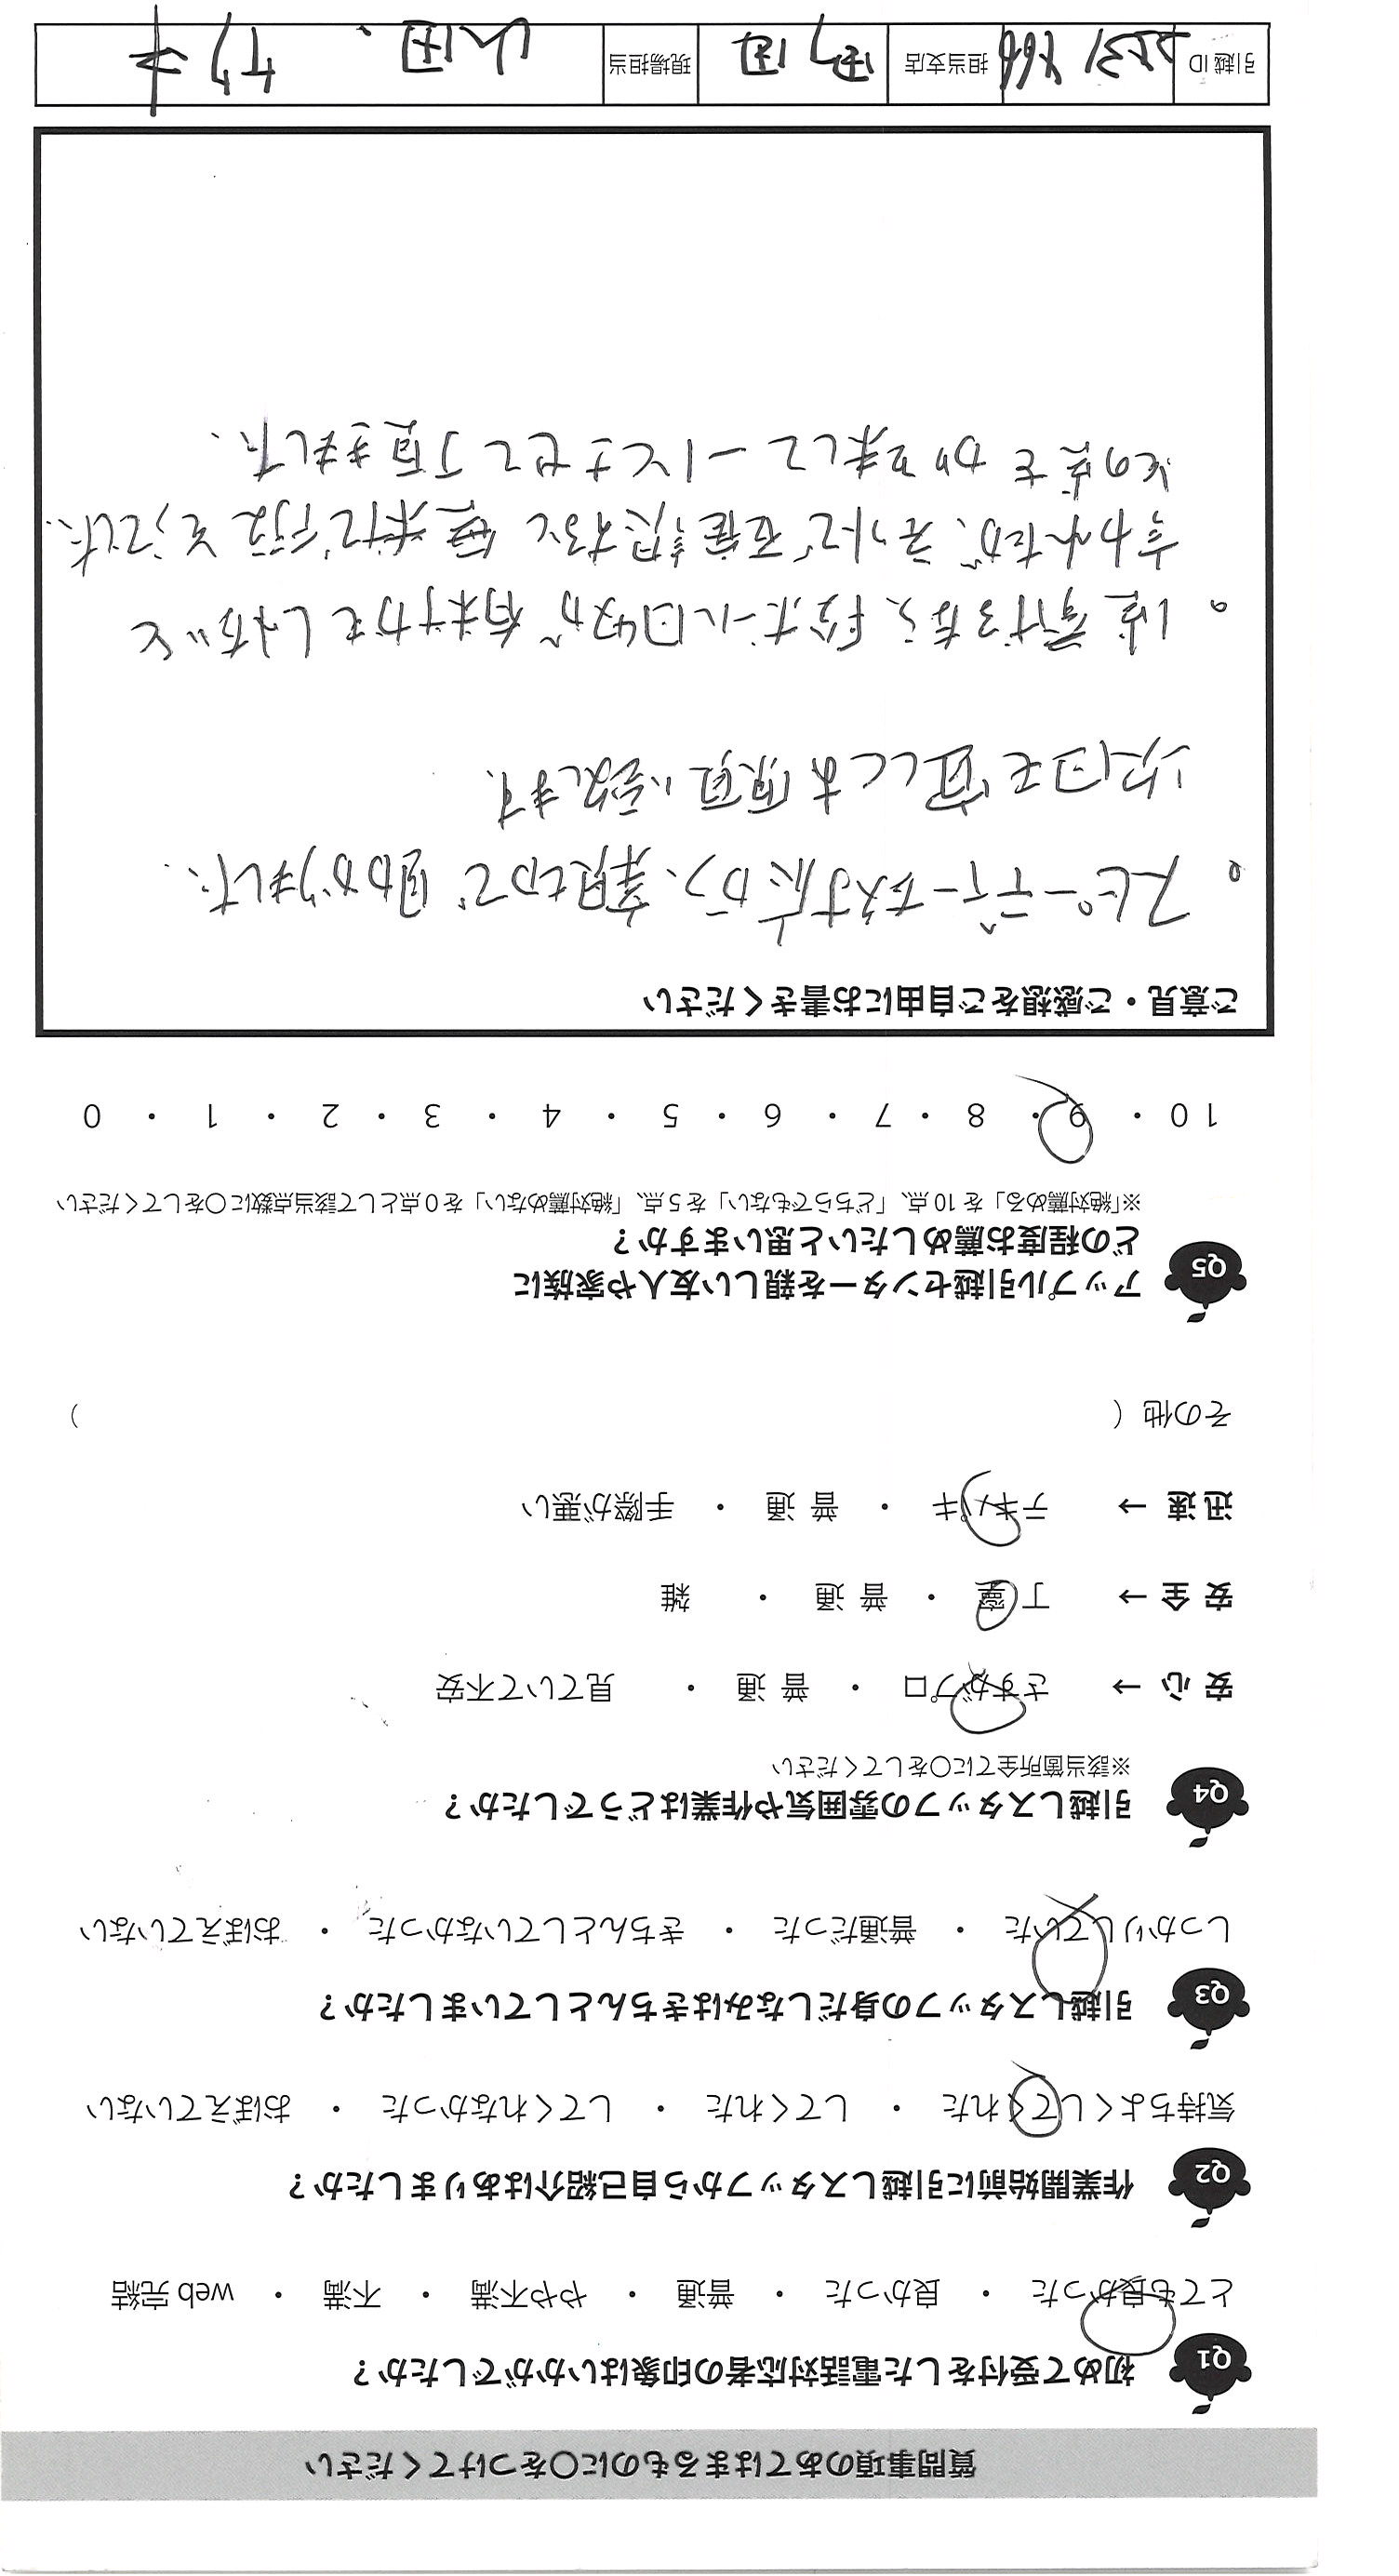 質問事項のあてはまるものに○をつけてください
Q1 初めて受付をした電話対応者の印象はいかがでしたか？
とても良かった ・ 良かった ・ 普通 ・ やや不満 ・ 不満 ・ web 完結
Q2 作業開始前に引越しスタッフから自己紹介はありましたか？
気持ちよくしてくれた ・ してくれた ・ してくれなかった ・ おぼえていない
Q3 引越しスタッフの身だしなみはきちんとしていましたか？
しっかりしていた ・ 普通だった ・ きちんとしていなかった ・ おぼえていない
Q4 引越しスタッフの雰囲気や作業はどうでしたか？
※該当箇所全てに○をしてください
安心 → さすがプロ ・ 普通 ・ 見ていて不安
安全 → 丁寧 ・ 普通 ・ 雑
迅速 → テキパキ ・ 普通 ・ 手際が悪い
その他（ ）
Q5 アップル引越センターを親しい友人や家族に
どの程度お薦めしたいと思いますか？
※「絶対薦める」を 10 点、「どちらでもない」を 5 点、「絶対薦めない」を 0 点として該当点数に○をしてください
10 ・ 9 ・ 8 ・ 7 ・ 6 ・ 5 ・ 4 ・ 3 ・ 2 ・ 1 ・ 0
ご意見・ご感想をご自由にお書きください
スピーディーな対応かつ、親切で 助かりました、
次回も宜しくお願い致します、
するなら、段ボール回収が 有料かもしれないと
言われたが、ネットで 確認すると 無料で でした、
引越 ID 担当支店 現場担当